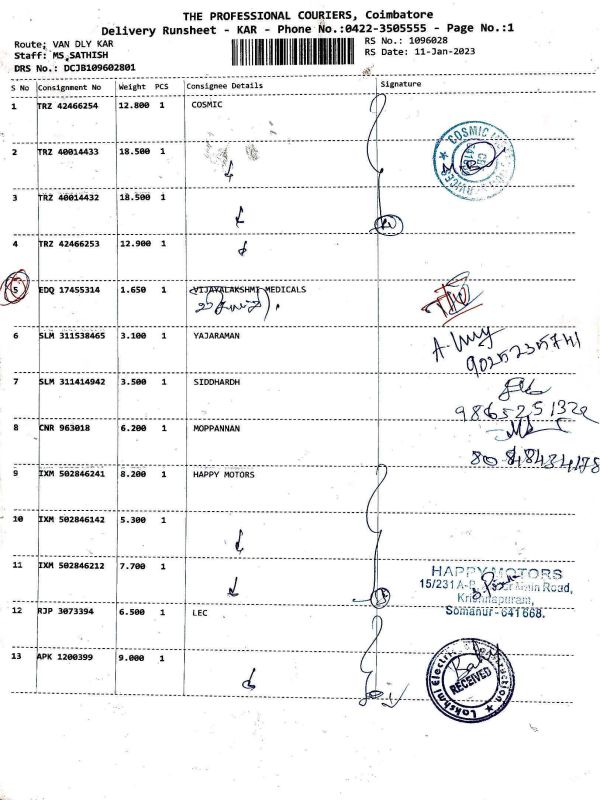 THE PROFESSIONAL COURIERS, Coimbatore
Delivery Runsheet - KAR - Phone No.:0422-3505555 - Page No.:1
Route: VAN DLY KAR
RS No.: 1096028
Staff: MS.SATHISH
RS Date: 11-Jan-2023
DRS No.: DCJB109602801
S No Consignment No Weight PCS Consignee Details Signature
1 TRZ 42466254 12.800 1 COSMIC
2 TRZ 40014433 18.500 1
3 TRZ 40014432 18.500 1
4 TRZ 42466253 12.900 1
5 EDQ 17455314 1.650 1 VIJAYALAKSHMI MEDICALS
6 SLM 311538465 3.100 1 YAJARAMAN
9025235741
7 SLM 311414942 3.500 1 SIDDHARDH
8 CNR 963018 6.200 1 MOPPANNAN
9 IXM 502846241 8.200 1 HAPPY MOTORS
10 IXM 502846142 5.300 1
11 IXM 502846212 7.700 1
HAPPY MOTORS
15/231 A- Main Road,
Krishnapuram,
Somanur - 641 668.
12 RJP 3073394 6.500 1 LEC
13 APK 1200399 9.000 1
Lakshmi
RECEIVED